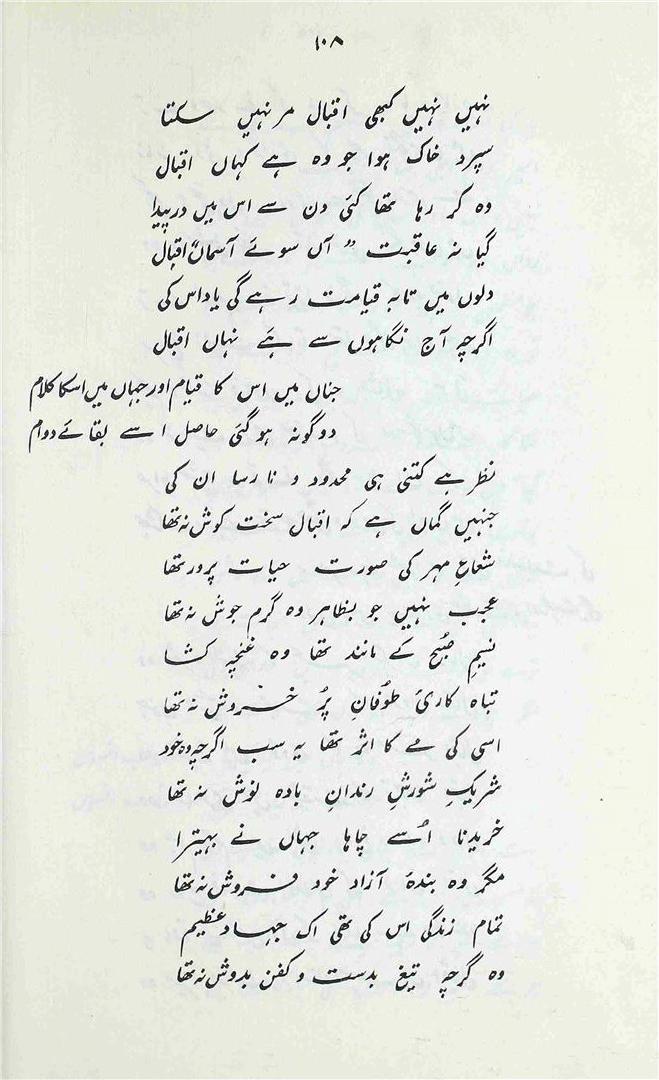 ۱۰۸
نہیں نہیں کبھی اقبال مر نہیں سکتا
سپرد خاک ہوا جو وہ ہے کہاں اقبال
وہ کر رہا تھا کئی دن سے اس میں در پیدا
گیا نہ عاقبت " آں سوئے آسماں" اقبال
دلوں میں تابہ قیامت رہے گی یاد اس کی
اگرچہ آج نگاہوں سے ہے نہاں اقبال
جناں میں اس کا قیام اور جہاں میں اسکا کلام
دوگونہ ہو گئی حاصل اسے بقائے دوام
نظر ہے کتنی ہی محدود و نارسا ان کی
جنہیں گماں ہے کہ اقبال سخت کوش نہ تھا
شعاعِ مہر کی صورت حیات پرور تھا
عجب نہیں جو بظاہر وہ گرم جوش نہ تھا
نسیمِ صُبح کے مانند تھا وہ غنچہ کشا
تباہ کاریٔ طُوفانِ پُر خروش نہ تھا
اسی کی مے کا اثر تھا یہ سب اگرچہ وہ خود
شریکِ شورشِ رندانِ بادہ نوش نہ تھا
خریدنا اُسے چاہا جہاں نے بہیترا
مگر وہ بندۂ آزاد خود فروش نہ تھا
تمام زندگی اس کی تھی اک جہادِ عظیم
وہ گرچہ تیغ بدست و کفن بدوش نہ تھا